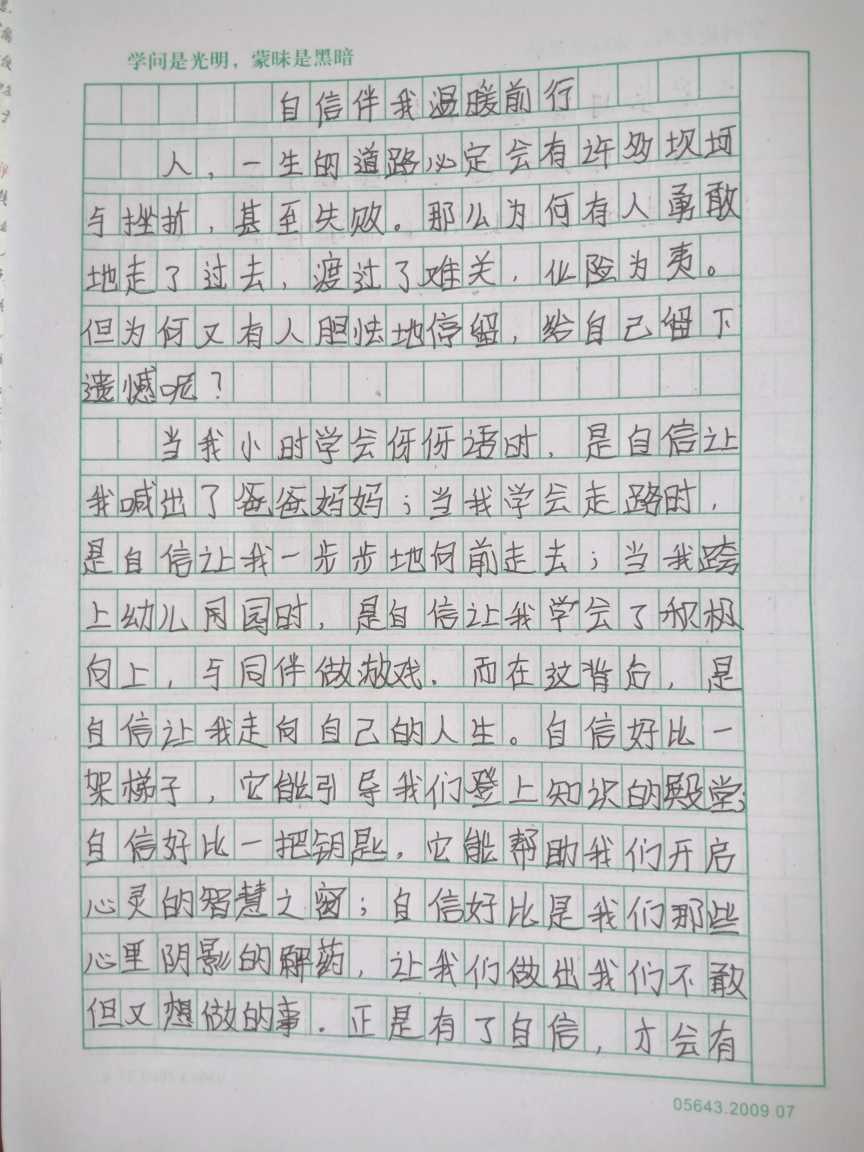 学问是光明，蒙昧是黑暗
自信伴我温暖前行
人，一生的道路必定会有许多坎坷
与挫折，甚至失败。那么为何有人勇敢
地走了过去，渡过了难关，化险为夷。
但为何又有人胆怯地停留，给自己留下
遗憾呢？
当我小时学会伢伢语时，是自信让
我喊出了爸爸妈妈；当我学会走路时，
是自信让我一步步地向前走去；当我跨
上幼儿园园时，是自信让我学会了积极
向上，与同伴做游戏．而在这背后，是
自信让我走向自己的人生。自信好比一
架梯子，它能引导我们登上知识的殿堂；
自信好比一把钥匙，它能帮助我们开启
心灵的智慧之窗；自信好比是我们那些
心里阴影的解药，让我们做出我们不敢
但又想做的事．正是有了自信，才会有
05643.2009.07